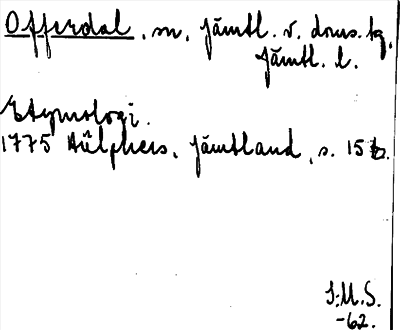 Offerdal, sn, Jämtl. v. doms. tg,
Jämtl. l.
Etymologi.
1775 Hülphers, Jämtland, s. 15
S.M.S.
-62.